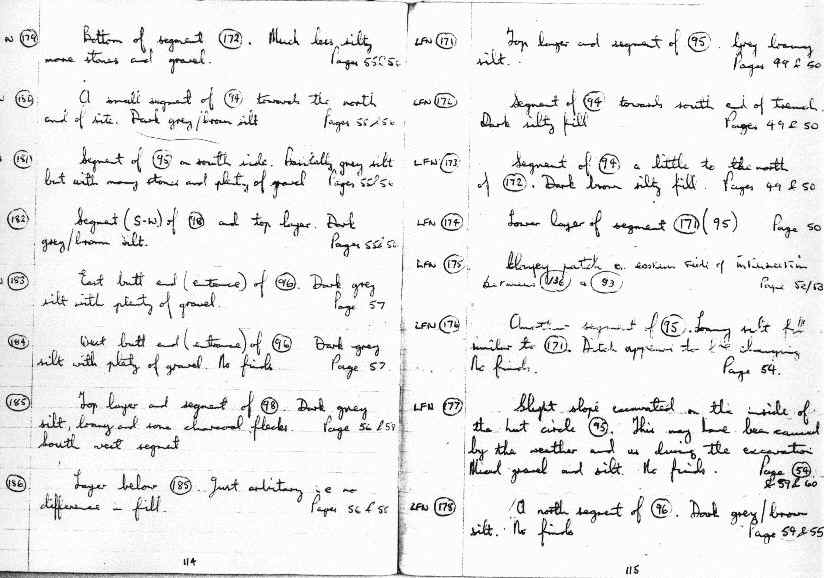 N 179 Bottom of segment 172. Much less silty
more stones and gravel. Pages 55 & 56
180 A small segment of 94 towards the north
end of site. Dark grey/brown silt Pages 55 & 56
181 Segment of 95 on south side. Basically grey silt
but with many stones and plenty of gravel Pages 55 & 56
182 Segment (S-W) of 98 and top layer. Dark
grey/brown silt. Pages 55 & 56
N 183 East butt end (entrance) of 96. Dark grey
silt with plenty of gravel. Page 57
184 West butt end (entrance) of 96 Dark grey
silt with plety of gravel. No finds Page 57
185 Top layer and segment of 98. Dark grey
silt, loamy and some charcoal flecks. Page 56 & 59
South west segmet
186 Layer below 185. Just arbitary i.e no
difference in fill. Pages 56 & 58
114
LFN 171 Top layer and segment of 95. Grey loamy
silt. Pages 49 & 50
LFN 172 Segment of 94 towards south end of trench.
Dark silty fill Pages 49 & 50
LFN 173 Segment of 94 a little to the north
of 172. Dark brown silty fill. Pages 49 & 50
LFN 174 Lower layer of segment 171 (95) Page 50
LFN 175 Clayey patch on eastern side of intersection
between 136 & 93 Page 52/53
LFN 176 Another segment of 95. Loamy silt fill
similar to 171. Ditch appears to be changing
No finds. Page 54.
LFN 177 Slight slope excavated on the inside of
the hut circle 95. This may have been caused
by the weather and us during the excavation
Mixed gravel and silt. No finds. Page 54
& 59 & 60
LFN 178 A north segment of 96. Dark grey/brown
silt. No finds Page 54 & 55
115